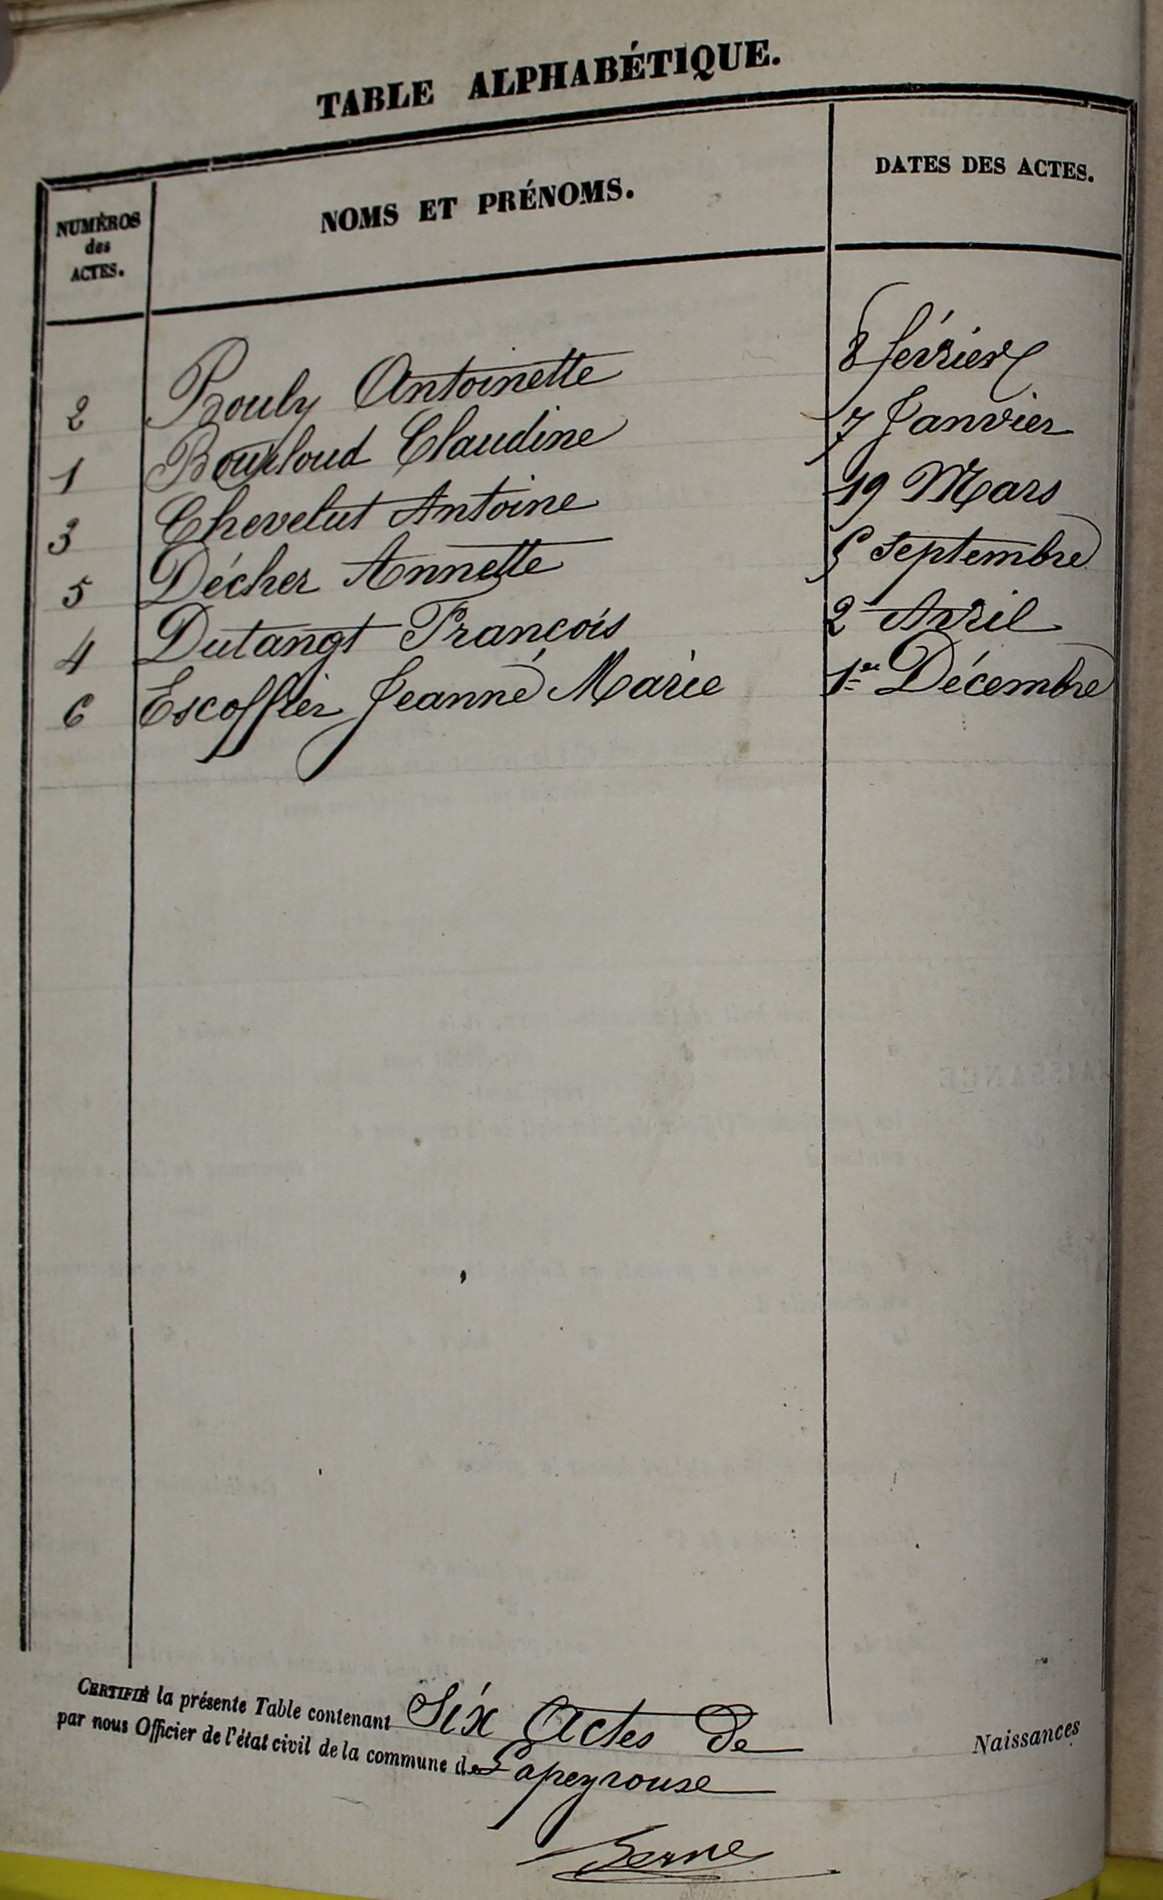 TABLE ALPHABÉTIQUE.
NUMÉROS des ACTES. NOMS ET PRÉNOMS. DATES DES ACTES.
2 Bouly Antoinette 8 février
1 Bourloud Claudine 7 Janvier
3 Chevelut Antoine 19 Mars
5 Décher Annette 5 Septembre
4 Dutangt François 2 Avril
6 Escoffier Jeanne Marie 1er Décembre
CERTIFIÉ la présente Table contenant Six Actes de Naissances
par nous Officier de l'état civil de la commune de Lapeyrouse